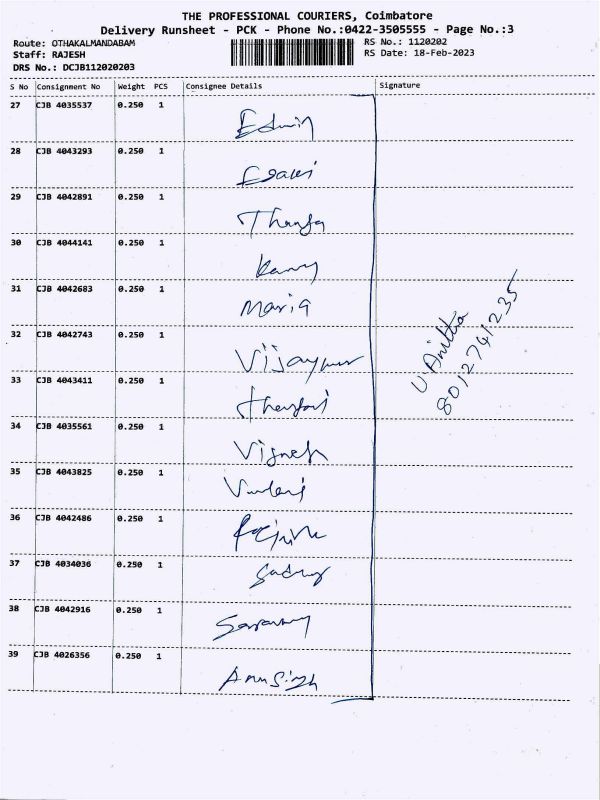 THE PROFESSIONAL COURIERS, Coimbatore
Delivery Runsheet - PCK - Phone No.:0422-3505555 - Page No.:3
Route: OTHAKALMANDABAM
RS No.: 1120202
Staff: RAJESH
RS Date: 18-Feb-2023
DRS No.: DCJB112020203
S No Consignment No Weight PCS Consignee Details Signature
27 CJB 4035537 0.250 1
Edwin
28 CJB 4043293 0.250 1
29 CJB 4042891 0.250 1
30 CJB 4044141 0.250 1
31 CJB 4042683 0.250 1
Maria
32 CJB 4042743 0.250 1
U Anitha
8012741235
33 CJB 4043411 0.250 1
34 CJB 4035561 0.250 1
Vignesh
35 CJB 4043825 0.250 1
36 CJB 4042486 0.250 1
37 CJB 4034036 0.250 1
38 CJB 4042916 0.250 1
39 CJB 4026356 0.250 1
Anusingh